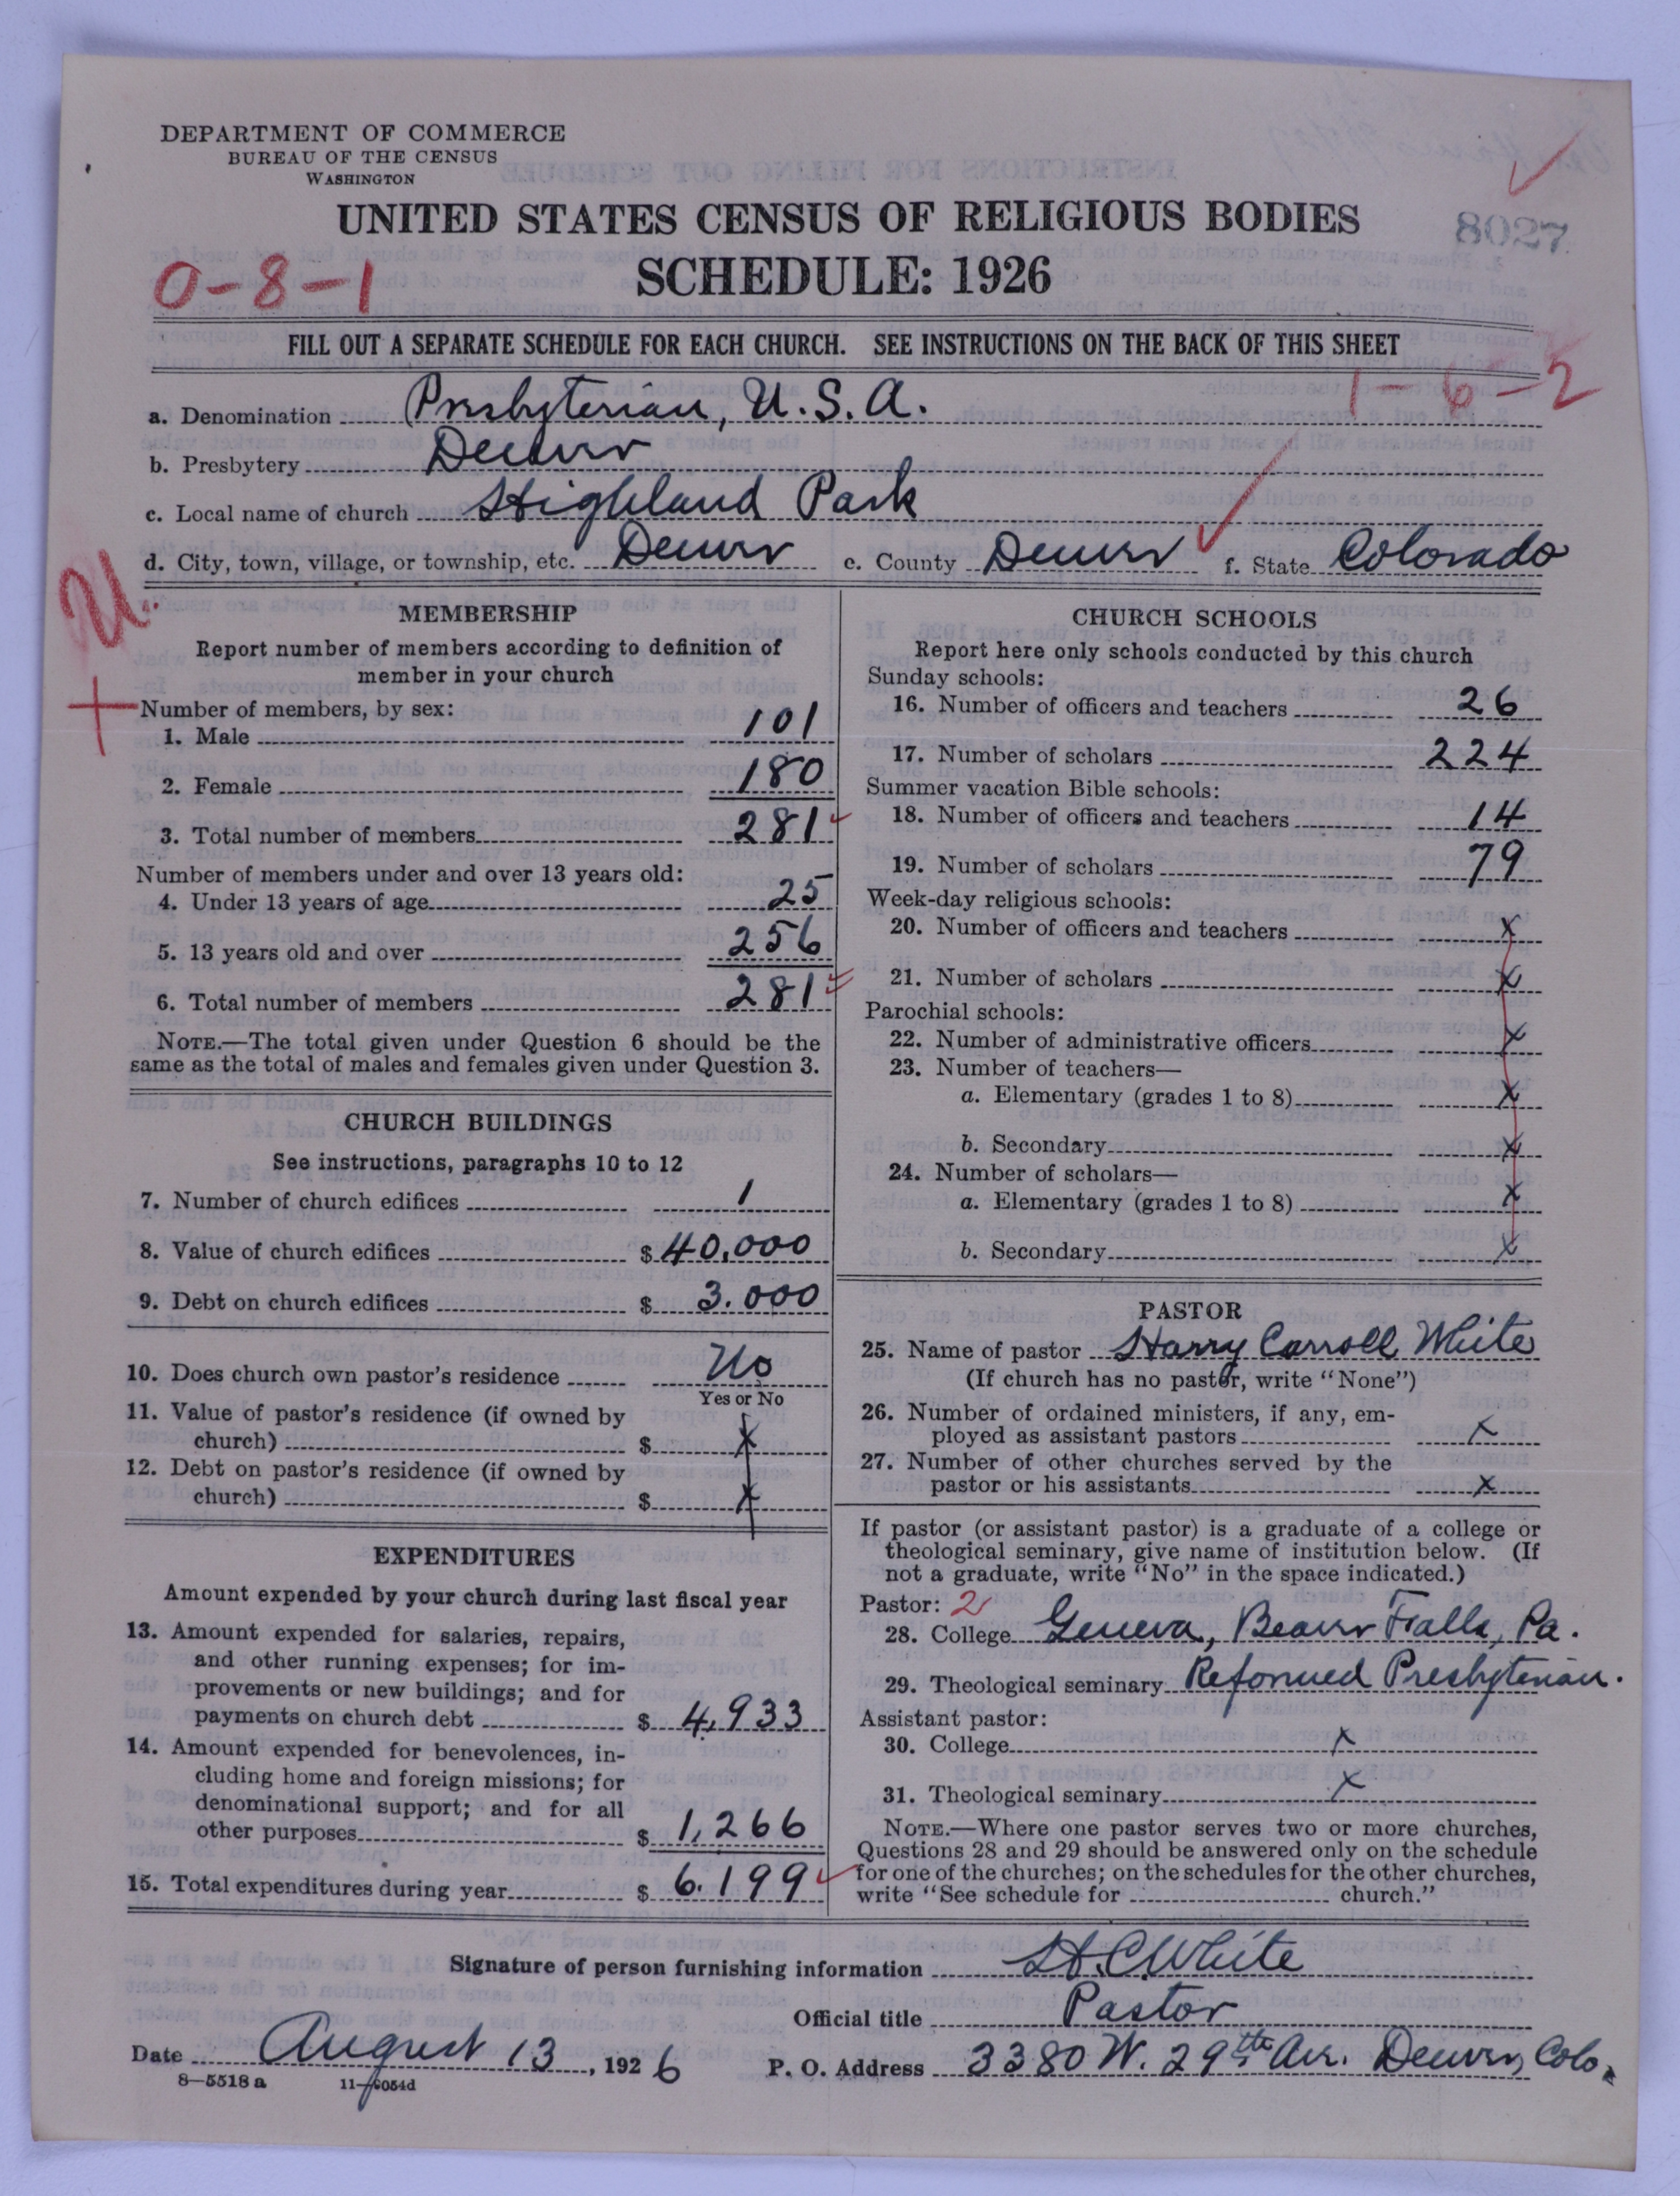 DEPARTMENT OF COMMERCE
BUREAU OF THE CENSUS
WASHINGTON
UNITED STATES CENSUS OF RELIGIOUS BODIES
8027
0-8-1
SCHEDULE: 1926
FILL OUT A SEPARATE SCHEDULE FOR EACH CHURCH. SEE INSTRUCTIONS ON THE BACK OF THIS SHEET
1-6-2
a. Denomination Presbyterian, U.S.A.
b. Presbytery Denver
c. Local name of church Highland Park
d. City, town, village, or township, etc. Denver e. County Denver f. State Colorado
MEMBERSHIP
Report number of members according to definition of
member in your church
Number of members, by sex:
1. Male 101
2. Female 180
3. Total number of members 281
Number of members under and over 13 years old:
4. Under 13 years of age 25
5. 13 years old and over 256
6. Total number of members 281
NOTE.—The total given under Question 6 should be the
same as the total of males and females given under Question 3.
CHURCH BUILDINGS
See instructions, paragraphs 10 to 12
7. Number of church edifices 1
8. Value of church edifices $40,000
9. Debt on church edifices $ 3.000
10. Does church own pastor's residence No
Yes or No
11. Value of pastor's residence (if owned by
church) $ x
12. Debt on pastor's residence (if owned by
church) $ x
EXPENDITURES
Amount expended by your church during last fiscal year
13. Amount expended for salaries, repairs,
and other running expenses; for im-
provements or new buildings; and for
payments on church debt $ 4,933
14. Amount expended for benevolences, in-
cluding home and foreign missions; for
denominational support; and for all
other purposes $ 1,266
15. Total expenditures during year $ 6.199
CHURCH SCHOOLS
Report here only schools conducted by this church
Sunday schools:
16. Number of officers and teachers 26
17. Number of scholars 224
Summer vacation Bible schools:
18. Number of officers and teachers 14
19. Number of scholars 79
Week-day religious schools:
20. Number of officers and teachers x
21. Number of scholars x
Parochial schools:
22. Number of administrative officers x
23. Number of teachers—
a. Elementary (grades 1 to 8) x
b. Secondary x
24. Number of scholars—
a. Elementary (grades 1 to 8) x
b. Secondary x
PASTOR
25. Name of pastor Harry Carroll White
(If church has no pastor, write "None")
26. Number of ordained ministers, if any, em-
ployed as assistant pastors x
27. Number of other churches served by the
pastor or his assistants x
If pastor (or assistant pastor) is a graduate of a college or
theological seminary, give name of institution below. (If
not a graduate, write "No" in the space indicated.)
Pastor: 2
28. College Geneva, Beaver Falls, Pa.
29. Theological seminary Reformed Presbyterian.
Assistant pastor:
30. College x
31. Theological seminary x
NOTE.—Where one pastor serves two or more churches,
Questions 28 and 29 should be answered only on the schedule
for one of the churches; on the schedules for the other churches,
write "See schedule for church."
Signature of person furnishing information H.C. White
Official title Pastor
Date August 13, 1926 P. O. Address 3380 W. 29th Ave. Denver, Colo.
8—5518 a 11—9054d